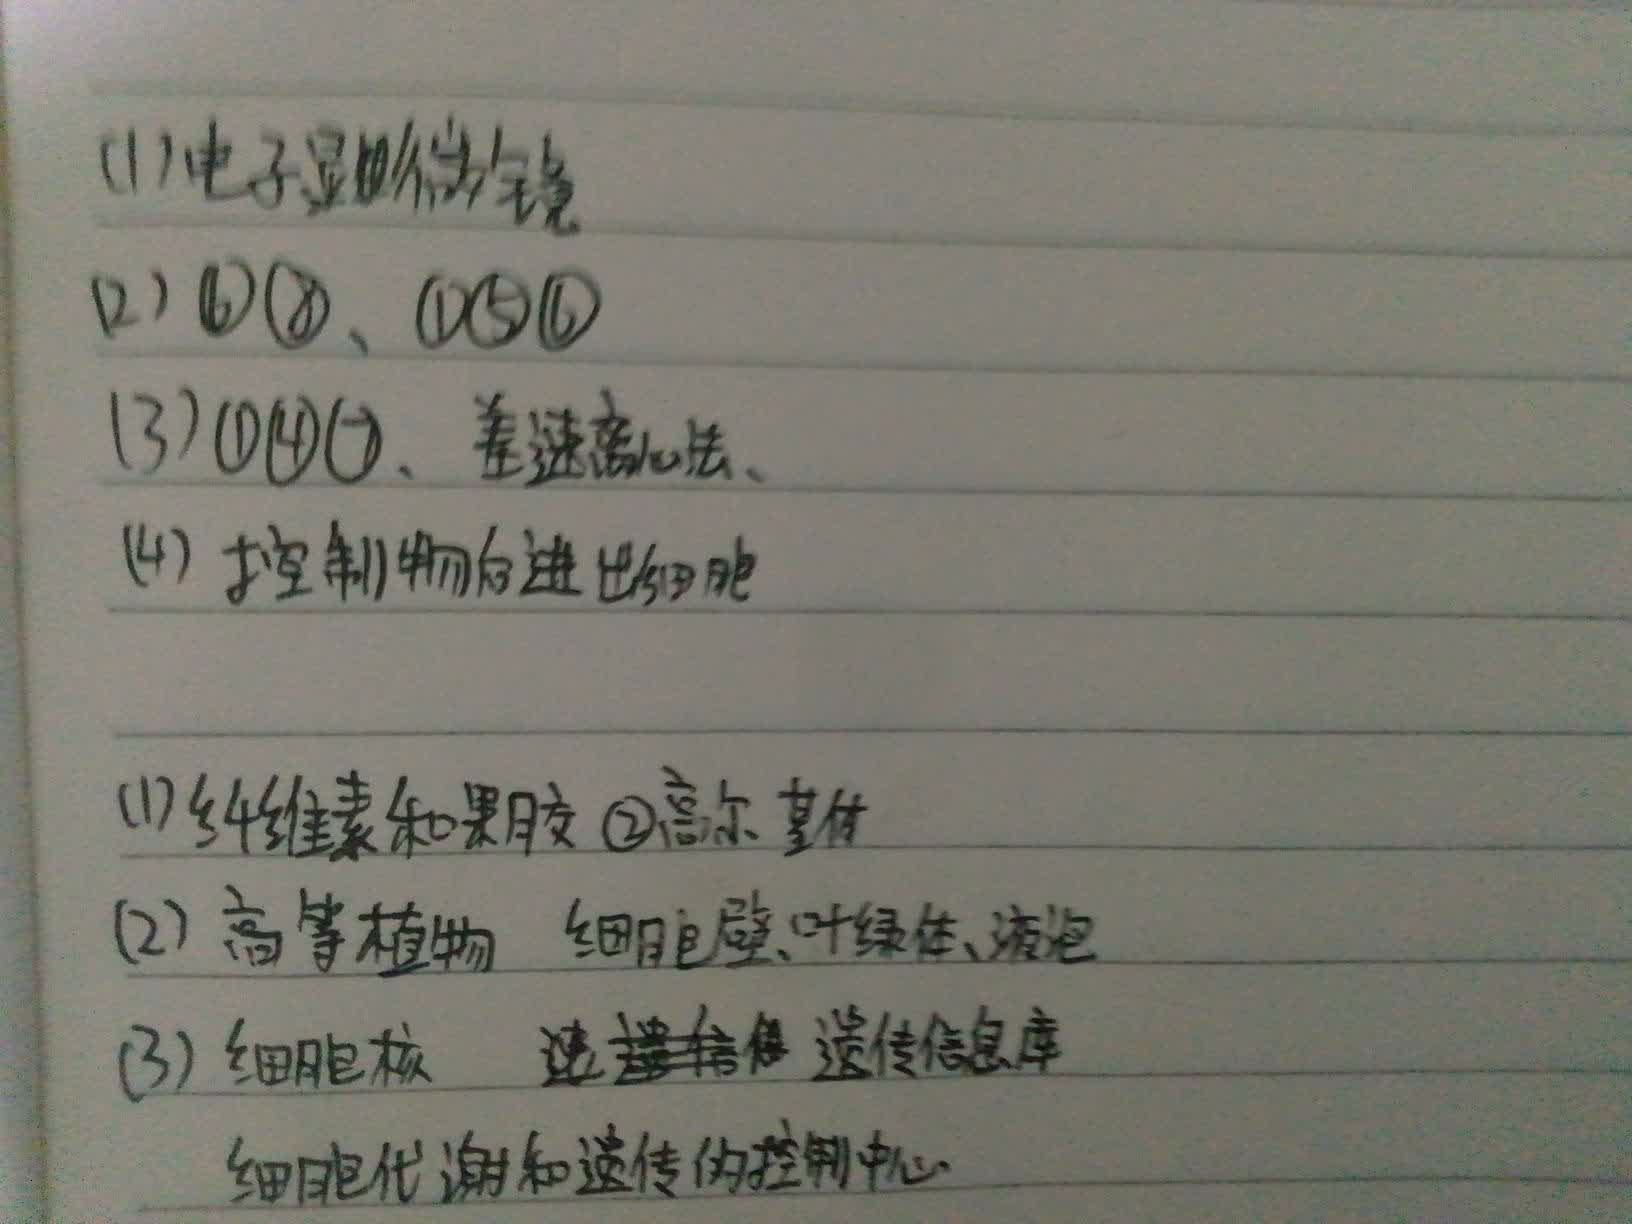 (1)电子显微镜
(2)⑥⑧、①⑤⑥
(3)①④⑦、差速离心法、
(4)控制物白进出细胞
(1)纤维素和果胶 ②高尔基体
(2)高等植物 细胞壁、叶绿体、液泡
(3)细胞核 遗传信息库
细胞代谢和遗传的控制中心